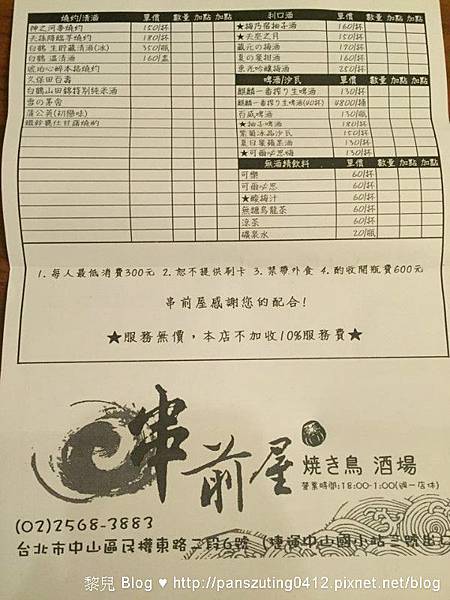 燒灼/清酒 單價 數量 加點 加點
神之河麥燒灼 150/杯
天孫降臨芋燒灼 180/杯
白鶴 生貯藏清酒(冰) 350/瓶
白鶴 溫清酒 160/盅
琥珀心醉本格燒灼
久保田百壽
白鶴山田錦特別純米酒
雪の茅舍
蒲公英(初戀味)
利口酒 單價 數量 加點 加點
★梅乃宿柚子酒 160/杯
★天空之月 150/杯
藏元の梅酒 170/杯
夏の蜜柑酒 160/杯
東光吟釀梅酒 250/杯
啤酒/沙瓦 單價 數量 加點 加點
麒麟一番搾り生啤酒 130/杯
麒麟一番搾り生啤酒(80杯) 8800/桶
百威啤酒 130/瓶
★柚子啤酒 180/杯
紫蘭冰晶沙瓦 150/杯
夏日蜜蘋果酒 130/杯
★可爾必思嗨 130/杯
無酒精飲料 單價 數量 加點 加點
可樂 60/杯
可爾必思 60/杯
★酸梅汁 60/杯
無糖烏龍茶 60/杯
涼茶 60/杯
礦泉水 20/瓶
1. 每人最低消費300元 2. 恕不提供刷卡 3. 禁帶外食 4. 酌收開瓶費600元
串前屋感謝您的配合!
★服務無價，本店不加收10%服務費★
串前屋
焼き鳥 酒場
營業時間:18:00-1:00(週一店休)
(02)2568-3883
台北市中山區民權東路二段6號 (捷運中山國小站三號出口
黎兒 Blog ♥ http://panszuting0412.pixnet.net/blog